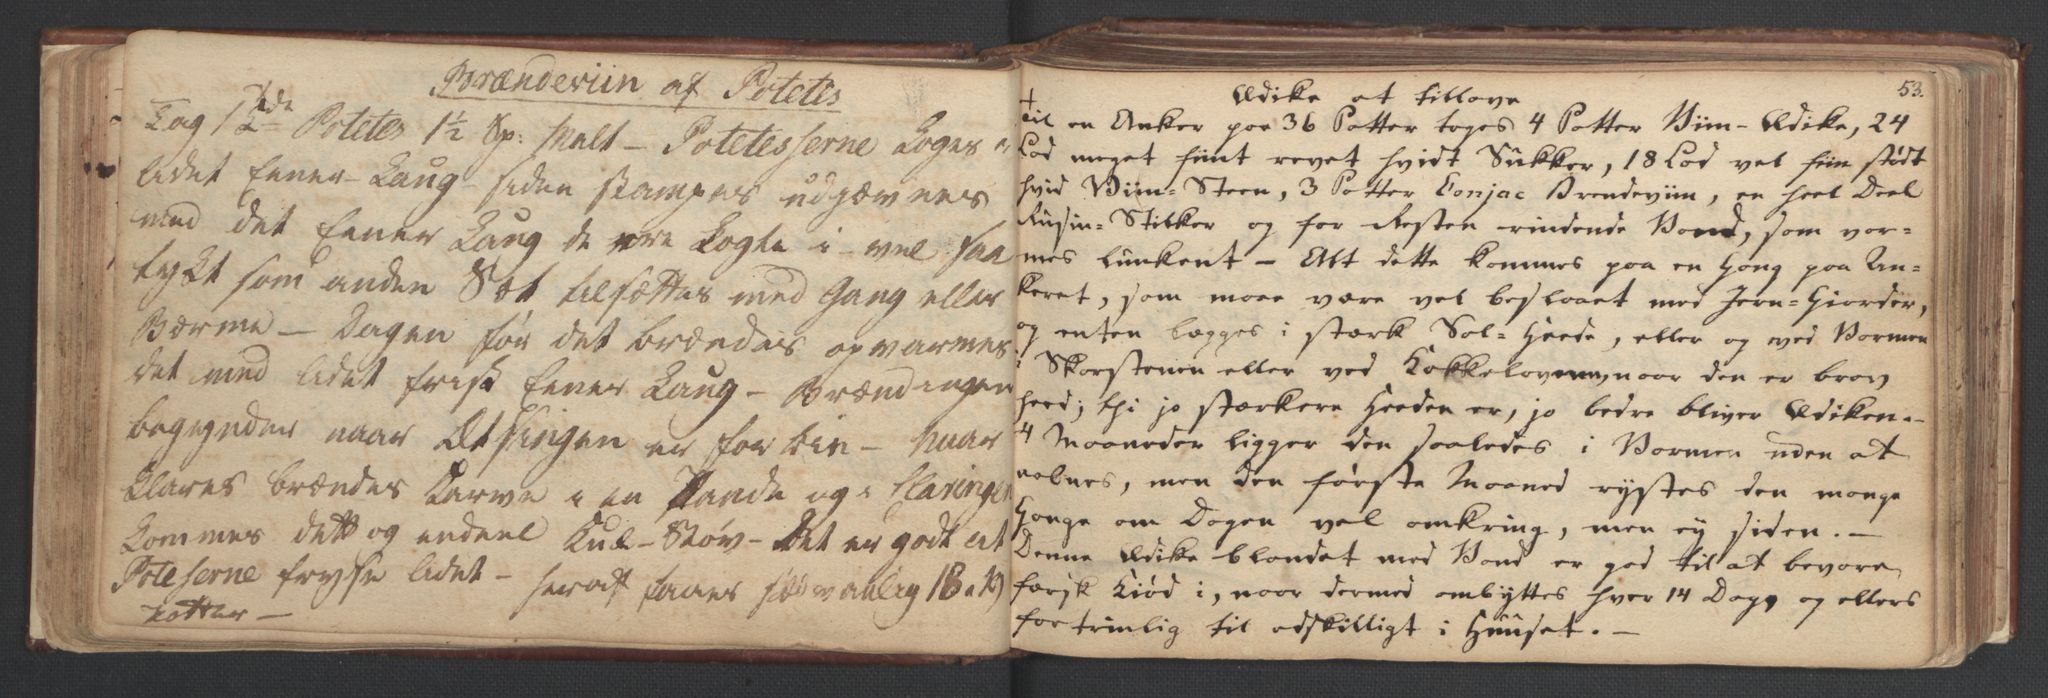 Brændeviin af Potetes
Tag 1 Tde Potetes 1½ Sp: Malt – Potetesserne Koges i
lidet Eener-Laug – siden stampes udjævnes
med det Eener Laug de ere Kogte i – vel saa
tykt som anden Sæt tilsættes med Gang eller
Bærme – Dagen før det brændes opvarmes
det med lidet frisk Eener Laug – Brændingen
begynder naar Et er forbie – naar
Klares brændes Karve i en Pande og i Claringen
Kommes dette og endeel Kul-Støv – Det er godt at
Poteserne fryse lidet – heraf faaes sædvanlig 18 a 19
Potter –
53.
Ædike at tillave
Til en Anker paa 36 Potter tages 4 Potter Viin-Ædike, 24
Lod meget fiint revet hvidt Sukker, 18 Lod vel fiin stødt
hvid Viin-Steen, 3 Potter Conjac Brendeviin, en heel Deel
Rusin-Stilker og for Resten rindende Vand, som var-
mes lunkent – Alt dette kommes paa en Gang paa An-
keret, som maae være vel beslaaet med Jern-Giorder,
og enten lægges i stærk Sol-Heede, eller og ved Varmen
i Skorstenen eller ved Kakkelovnen, naar den er brav
heed; thi jo stærkere Heeden er, jo bedre bliver Ædiken. –
4 Maaneder ligger den saaledes i Varmen uden at
aabnes, men den første Maaned rystes den mange
Gange om Dagen vel omkring, men ey siden. –
Denne Ædike blandet med Vand er god til at bevare
færsk Kiød i, naar dermed ombyttes hver 14 Dage og ellers
fortrinlig til adskilligt i Huuset. –